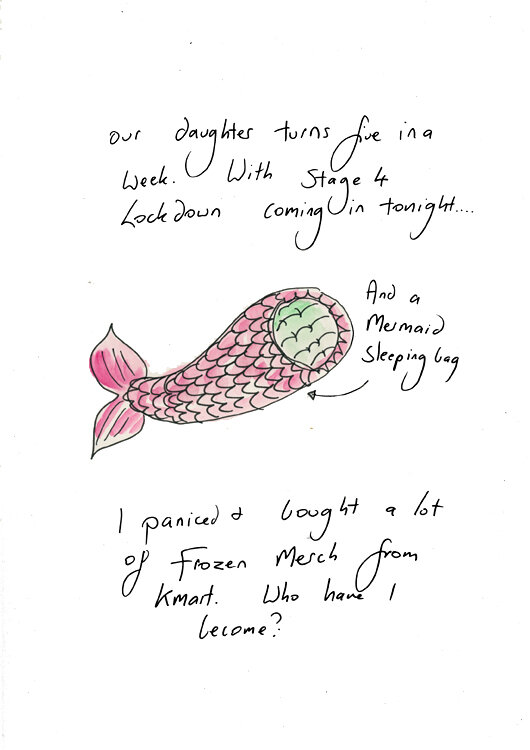 our daughter turns five in a
week. With Stage 4
Lockdown coming in tonight....
And a
Mermaid
Sleeping bag
I paniced & bought a lot
of Frozen Merch from
Kmart. Who have I
become?